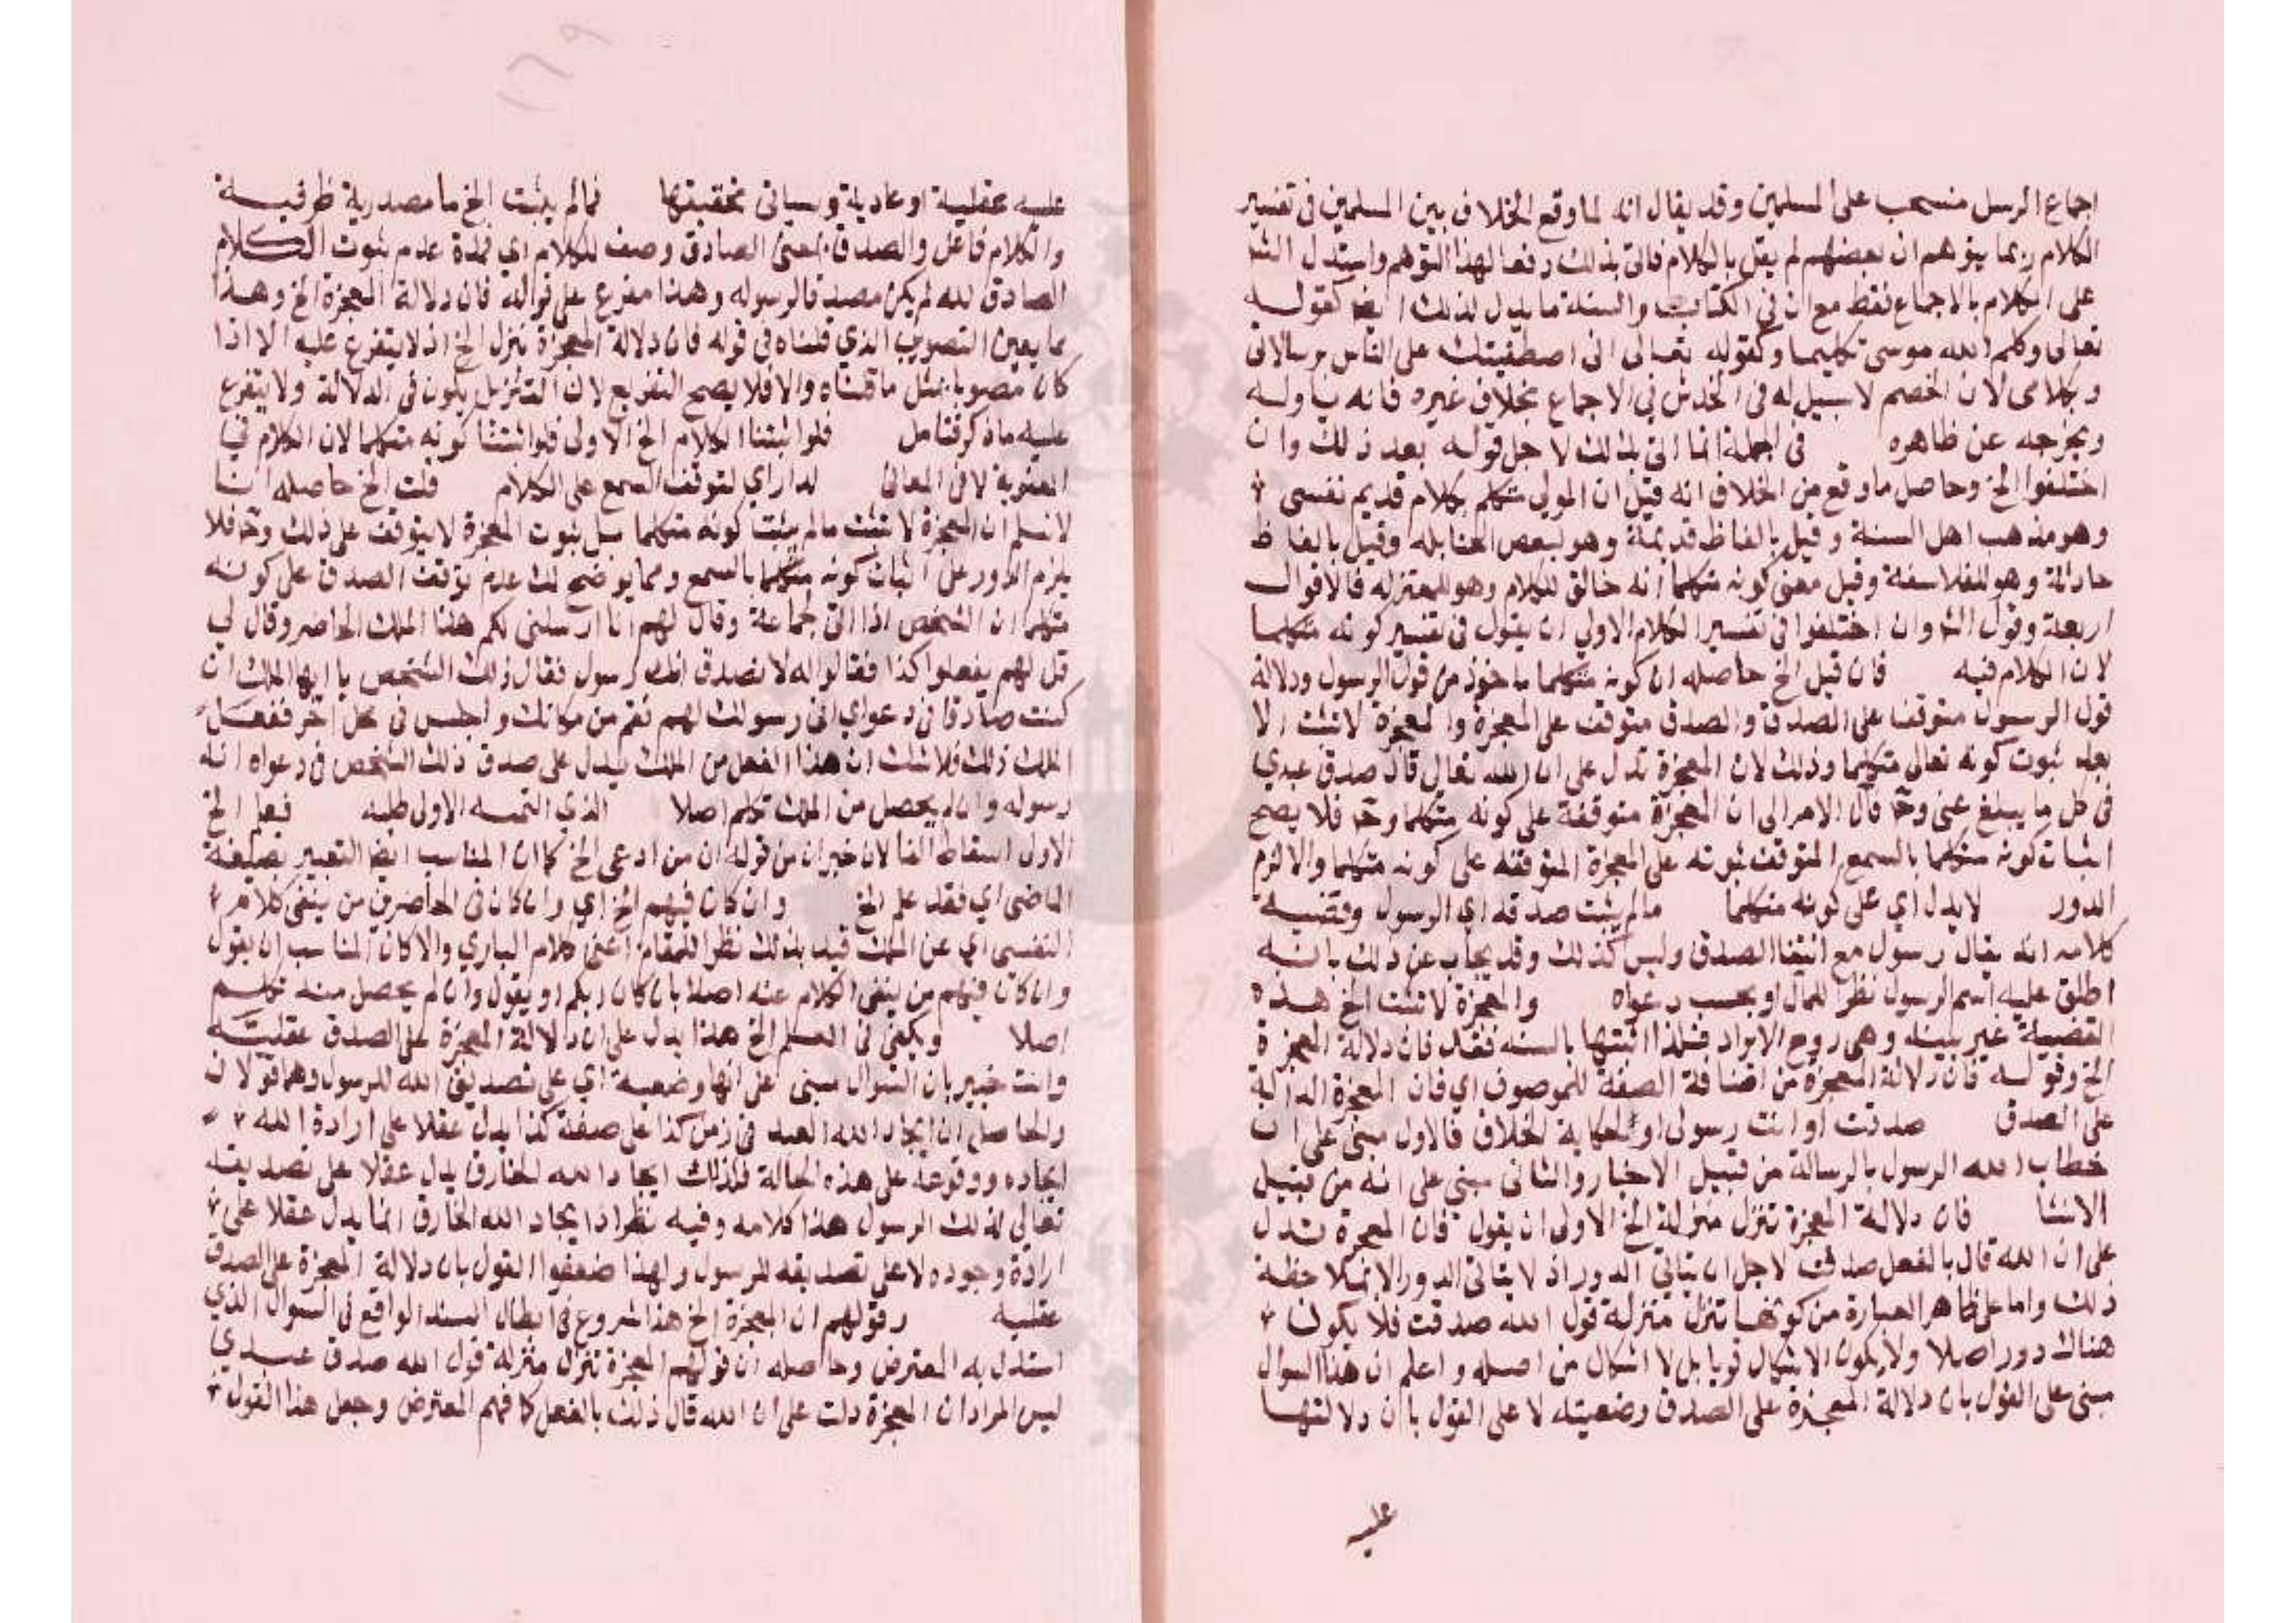 اجماع الرسل منسحب على المسلمين وقد يقال انه لما وقع الخلاف بين المسلمين في تفسير
الكلام ربما يتوهم ان بعضهم لم يقل بالكلام فاتى بذلك دفعا لهذا التوهم واستدل الش
على الكلام بالاجماع فقط مع ان في الكتاب والسنة ما يدل لذلك ايضا كقوله
تعالى وكلم الله موسى تكليما وكقوله تعالى اني اصطفيتك على الناس برسالاتي
وبكلامي لان الخصم لا سبيل له في الخدش في الاجماع بخلاف غيره فانه يناوله
ويخرجه عن ظاهره في الجملة انما اتى بذلك لاجل قوله بعد ذلك وان
اختلفوا الخ وحاصل ما وقع من الخلاف انه قيل ان المولى متكلم بكلام قديم نفسي
وهو مذهب اهل السنة وقيل بالفاظ قديمة وهو لبعض الحنابله وقيل بالفاظ
حادثة وهو للفلاسفة وقيل معنى كونه متكلما انه خالق للكلام وهو للمعتزله فالاقوال
اربعة وقول الش وان اختلفوا في تفسير الكلام الاولى ان يقول في تفسير كونه متكلما
لان الكلام فيه فان قيل الخ حاصله ان كونه متكلما ماخوذ من قول الرسول ودلالة
قول الرسول متوقفا على الصدق والصدق متوقف على المعجزة والمعجزة لا تثبت الا
بعد ثبوت كونه تعالى متكلما وذلك لان المعجزة تدل على ان الله تعالى قال صدق عبدي
في كل ما يبلغ عني وح فآل الامر الى ان المعجزة متوقفة على كونه متكلما وح فلا يصح
اثبات كونه متكلما بالسمع المتوقف ثبوته على المعجزة المتوقفه على كونه متكلما والا لزم
الدور لا يدل اي على كونه متكلما مالم يثبت صدقه اي الرسول وقضيه
كلامه انه يقال رسول مع انتفا الصدق وليس كذلك وقد يجاب عن ذلك بانه
اطلق عليه اسم الرسول نظرا للمآل او بحسب دعواه والمعجزة لا تثبت الخ هذه
القضية غير بينه وهي روح الايراد فلذا اثبتها بالسند فقد فان دلالة المعجزة
الخ وقوله فان دلالة المعجزة من اضافة الصفة للموصوف اي فان المعجزة الدالة
على الصدق صدقت او انت رسولي او لحكاية الخلاف فالاول مبني على ان
خطاب الله الرسول بالرسالة من قبيل الاخبار والثاني مبني على انه من قبيل
الانشا فان دلالة المعجزة تنزل منزلة الخ الاولى ان يقول فان المعجزة تدل
على ان الله قال بالفعل صدقت لاجل ان يتاتى الدور اذ لا يتاتى الدور الا بملاحظة
ذلك واما على ظاهر العبارة من كونها تنزل منزلة قول الله صدقت فلا يكون
هناك دور اصلا ولا يكون الاشكال قويا بل لا اشكال من اصله واعلم ان هذا السوال
مبني على القول بان دلالة المعجزة على الصدق وضعيته لا على القول بان دلالتها
عليه
عليه عقلية او عادية وسياتي تحقيقها فمالم يثبت الخ ما مصدرية ظرفية
والكلام فاعل والصدق بمعنى الصادق وصف للكلام اي فمدة عدم ثبوت الكلام
الصادق لله لم يكن مصدقا لرسوله وهذا مفرع على قوله فان دلالة المعجزة الخ وهذا
مما يعين التصويب الذي قلناه في قوله فان دلالة المعجزة تنزل الخ اذ لا يتفرع عليه الا اذا
كان مصوبا بمثل ما قلناه والا فلا يصح التفريع لان التنزيل يكون في الدلالة ولا يتفرع
عليه ما ذكر فتامل فلو اثبتنا الكلام الخ الاولى فلو اثبتنا كونه متكلما لان الكلام في
المعنوية لا في المعاني لدار اي لتوقف السمع على الكلام قلت الخ حاصله اننا
لا نسلم ان المعجزة لا تثبت مالم يثبت كونه متكلما بل ثبوت المعجزة لا يتوقف على ذلك وح فلا
يلزم الدور على اثبات كونه متكلما بالسمع ومما يوضح لك عدم توقف الصدق على كونه
متكلما ان الشخص اذا اتى جماعة وقال لهم انا ارسلني لكم هذا الملك الحاضر وقال لي
قل لهم يفعلوا كذا فقالوا له لا نصدق انك رسول فقال ذلك الشخص يا ايها الملك ان
كنت صادقا في دعواي اني رسولك لهم فقم من مكانك واجلس في محل اخر ففعل
الملك ذلك فلا شك ان هذا الفعل من الملك يدل على صدق ذلك الشخص في دعواه انه
رسوله وان لم يحصل من الملك تكلم اصلا الذي التمسه الاولى طلبه فعلم الخ
الاولى اسقاط الفا لانه خبر ان من قوله ان من ادعى الخ كما ان المناسب ايضا التعبير بصيغة
الماضي اي فقد علم الخ وان كان فيهم الخ اي وان كان في الحاضرين من ينفي كلامه
النفسي اي عن الملك قيد بذلك نظرا للمقام اعني كلام الباري والا كان المناسب ان يقول
وان كان فيهم من ينفي الكلام عنه اصلا بان كان ابكم او يقول وان لم يحصل منه تكلم
اصلا ويكفي في العلم الخ هذا يدل على ان دلالة المعجزة على الصدق عقلية
وانت خبير بان السوال مبني على انها وضعية اي على تصديق الله للرسول وهما قولان
والحاصل ان ايجاد الله العبد في زمن كذا على صفة كذا يدل عقلا على ارادة الله
ايجاده ووقوعه على هذه الحالة فلذلك ايجاد الله الخارق يدل عقلا على تصديقه
تعالى لذلك الرسول هذا كلامه وفيه نظر اذ ايجاد الله الخارق انما يدل عقلا على
ارادة وجوده لا على تصديقه للرسول ولهذا ضعفوا القول بان دلالة المعجزة على الصدق
عقليه وقولهم ان المعجزة الخ هذا شروع في ابطال السند الواقع في السوال الذي
استدل به المعترض وحاصله ان قولهم المعجزة تنزل منزلة قول الله صدق عبدي
ليس المراد ان المعجزة دلت على ان الله قال ذلك بالفعل كما فهم المعترض وجعل هذا القول